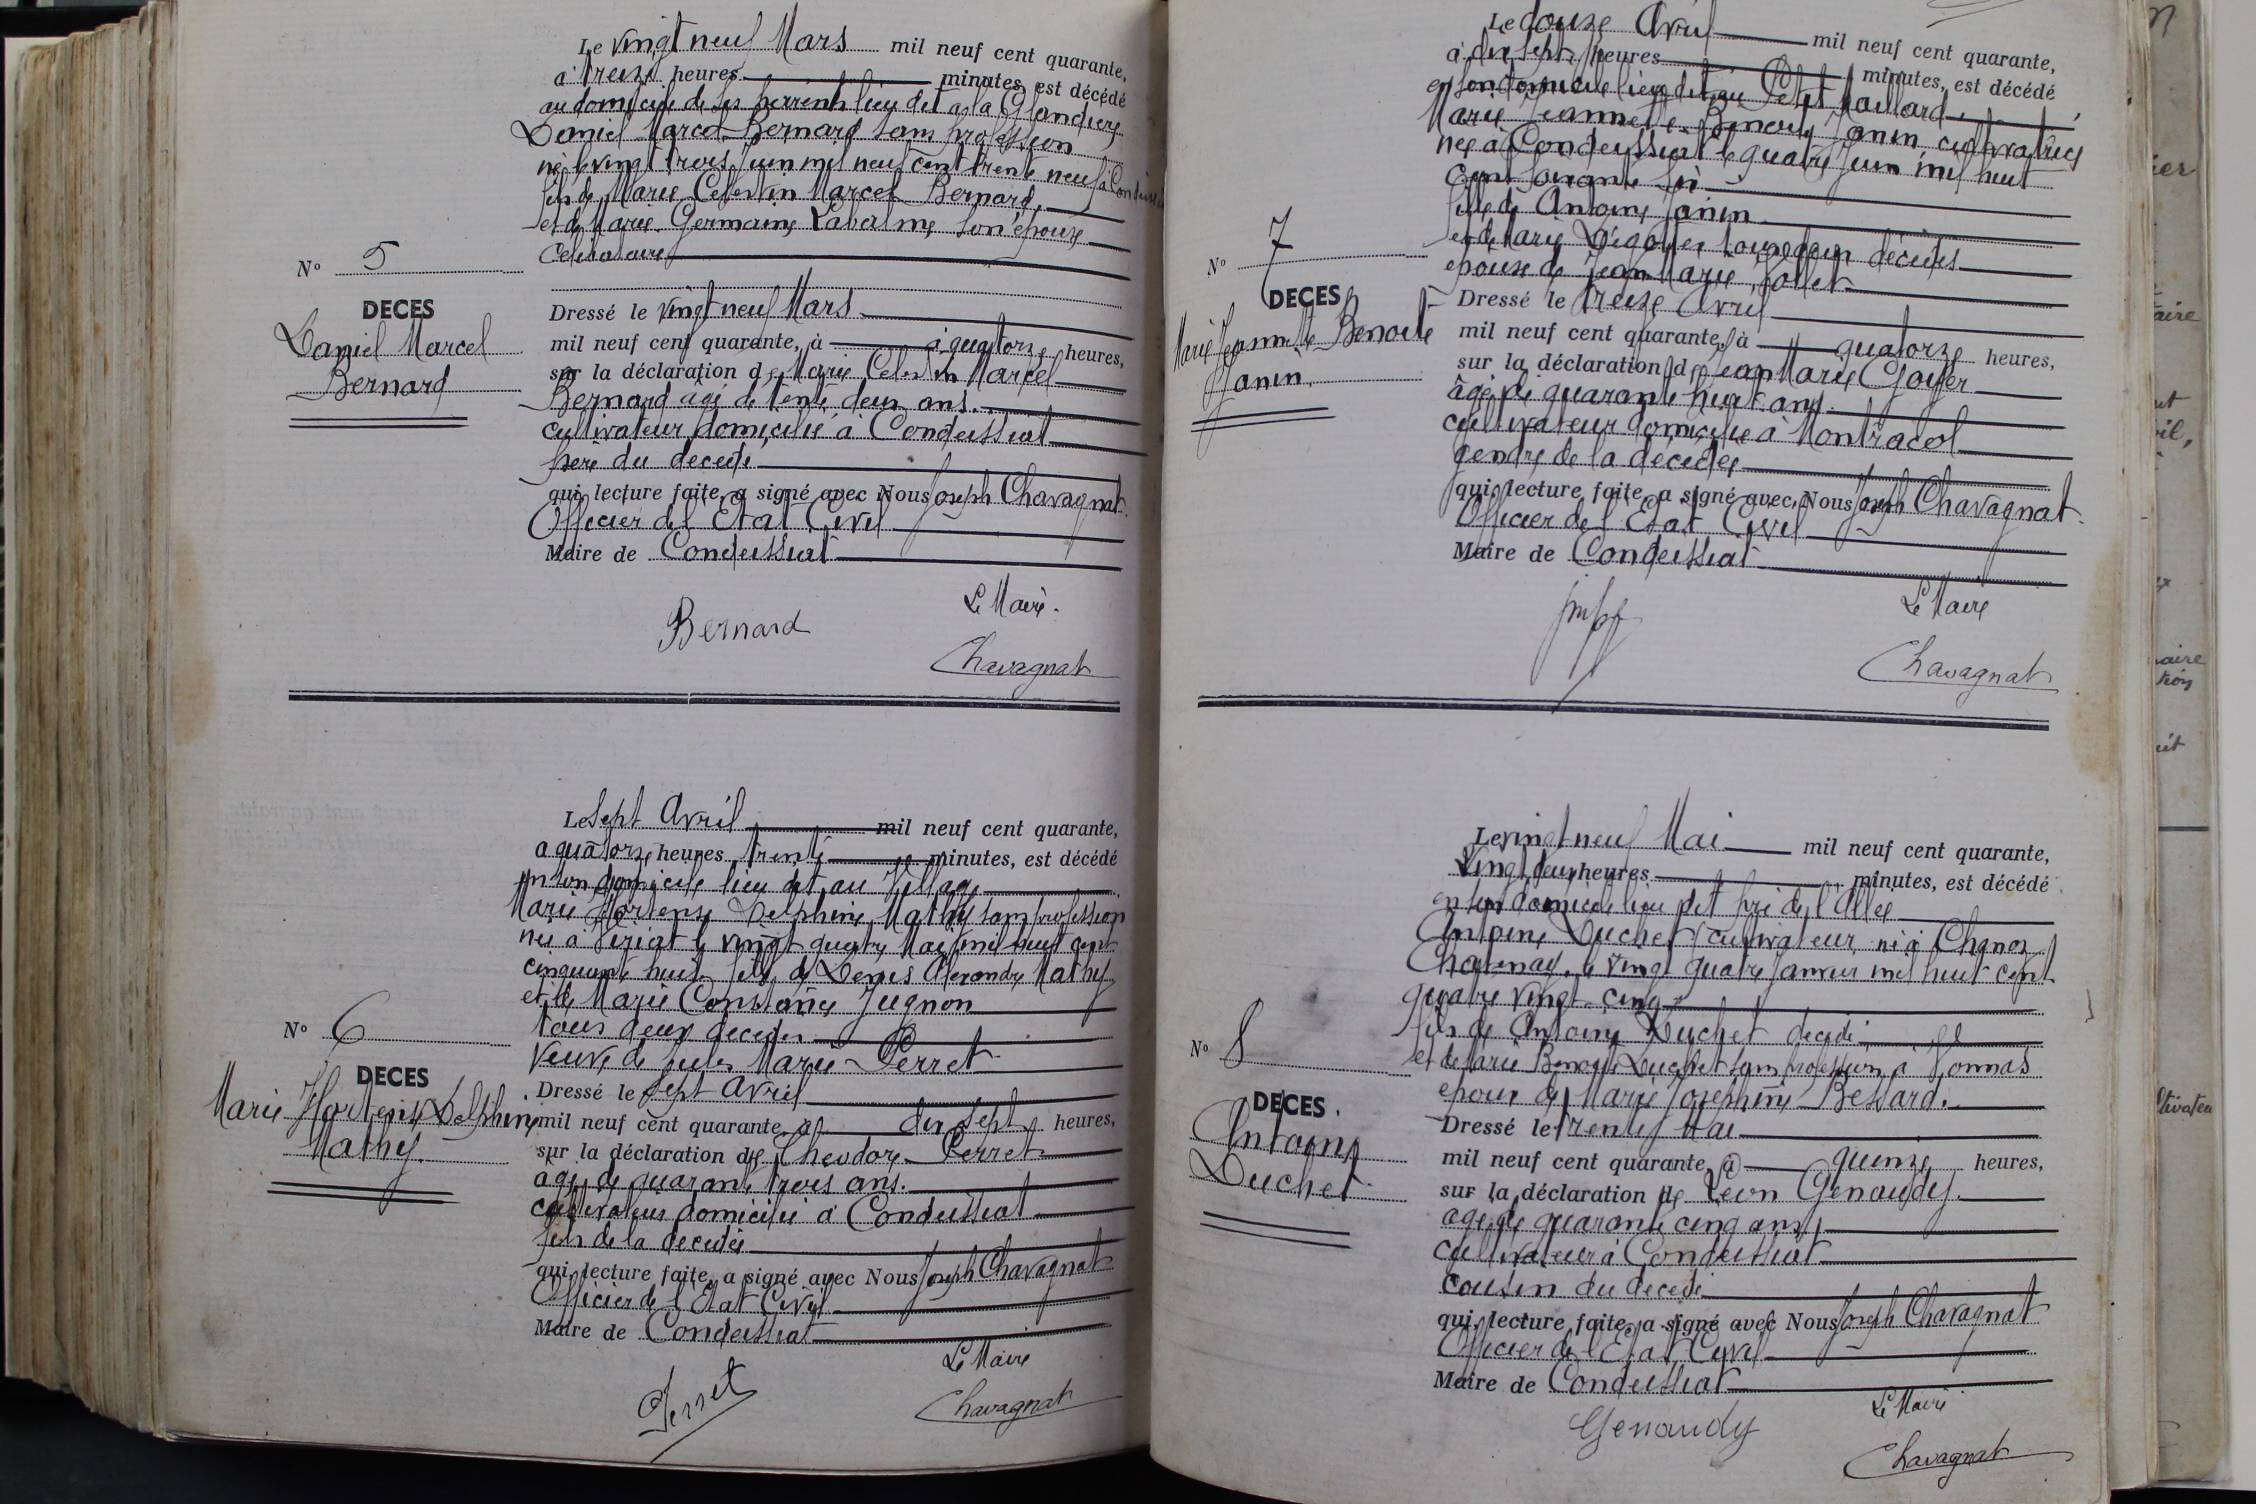 Le vingt neuf Mars mil neuf cent quarante,
à treize heures minutes, est décédé
au domicile de ses parents lieu dit à la Glandiere
Daniel Marcel Bernard sans profession
né le vingt trois juin mil neuf cent trente neuf à Condeissiat
fils de Marie Celestin Marcel Bernard
et de Marie Germaine Lavalme son épouse
Celibataire
N° 5
DECES
Daniel Marcel
Bernard
Dressé le vingt neuf Mars
mil neuf cent quarante, à à quatorze heures,
sur la déclaration de Marie Celestin Marcel
Bernard agé de trente deux ans.
cultivateur domicilié à Condeissiat
père du décédé
qui, lecture faite, a signé avec Nous Joseph Chavagnat
Officier de l'Etat Civil
Maire de Condeissiat
Le Maire.
Bernard
Chavagnat
Le sept Avril mil neuf cent quarante,
a quatorze heures trente minutes, est décédé
en son domicile lieu dit au Village
Marie Hortense Delphine Mathy sans profession
née à le vingt quatre Mai mil huit cent
cinquante huit fille de Denis Alexandre Mathy
et de Marie Constance Jugnon
tous deux décédés
veuve de Jules Marie Perret
N° 6
DECES
Marie Hortense Delphine
Mathy.
Dressé le sept Avril
mil neuf cent quarante, à dix sept heures,
sur la déclaration de Theodore Perret
agé de quarante trois ans.
cultivateur domicilié à Condeissiat
fils de la décédée
qui, lecture faite, a signé avec Nous Joseph Chavagnat
Officier de l'Etat Civil
Maire de Condeissiat
Le Maire
Perret
Chavagnat
Le douze Avril mil neuf cent quarante,
à dix sept heures minutes, est décédé
en son domicile lieu dit au Petit Maillard
Marie Jeannette Benoite Janin cultivatrice
née à Condeissiat le quatre Juin mil huit
cent soixante six
fille de Antoine Janin
et de Marie décédés
épouse de Jean Marie
N° 7
DECES
Marie Jeannette Benoite
Janin.
Dressé le treize Avril
mil neuf cent quarante, à quatorze heures,
sur la déclaration de Jean Marie Goyer
âgé de quarante huit ans
cultivateur domicilié à Montracol
gendre de la décédée
qui, lecture faite, a signé avec Nous Joseph Chavagnat
Officier de l'Etat Civil
Maire de Condeissiat
Le Maire
Chavagnat
Le vingt neuf Mai mil neuf cent quarante,
vingt deux heures minutes, est décédé
en son domicile lieu dit pré de l'Allée
Antoine Duchet cultivateur né à Chanoz
Chatenay le vingt quatre Janvier mil huit cent
quatre vingt cinq
fils de Antoine Duchet décédé
et de Marie Benoite Duchet sans profession à Vonnas
époux de Marie Josephine Bessard.
N° 8
DECES.
Antoine
Duchet
Dressé le trente Mai
mil neuf cent quarante, à quinze heures,
sur la déclaration de Léon Genaudy.
agé de quarante cinq ans
cultivateur à Condeissiat
cousin du décédé
qui, lecture faite, a signé avec Nous Joseph Chavagnat
Officier de l'Etat Civil
Maire de Condeissiat
Le Maire
Genaudy
Chavagnat